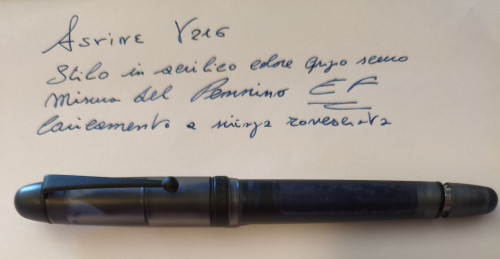 Asvine V216
Stilo in acrilico colore grigio scuro
Misura del Pennino EF
Caricamento a siringa rovesciata